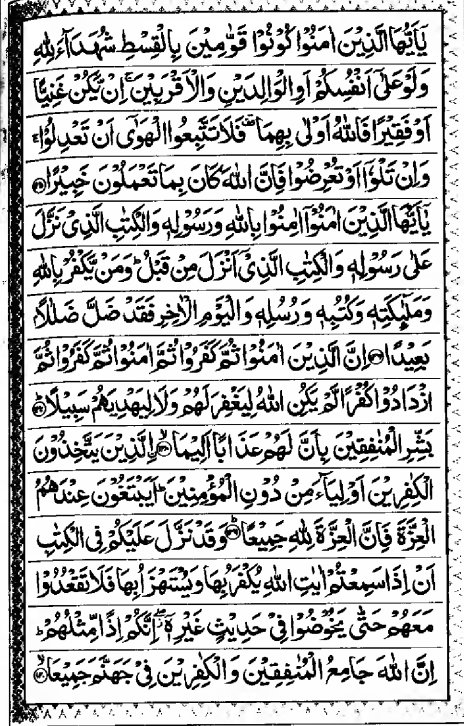 يٰٓاَيُّهَا الَّذِيْنَ اٰمَنُوْا كُوْنُوْا قَوّٰمِيْنَ بِالْقِسْطِ شُهَدَآءَ لِلّٰهِ
وَلَوْ عَلٰٓى اَنْفُسِكُمْ اَوِ الْوَالِدَيْنِ وَالْاَقْرَبِيْنَ ۚ اِنْ يَّكُنْ غَنِيًّا
اَوْ فَقِيْرًا فَاللّٰهُ اَوْلٰى بِهِمَا ۫ فَلَا تَتَّبِعُوا الْهَوٰٓى اَنْ تَعْدِلُوْا ۚ
وَاِنْ تَلْوٗٓا اَوْ تُعْرِضُوْا فَاِنَّ اللّٰهَ كَانَ بِمَا تَعْمَلُوْنَ خَبِيْرًا ﴿۱۳۵﴾
يٰٓاَيُّهَا الَّذِيْنَ اٰمَنُوْٓا اٰمِنُوْا بِاللّٰهِ وَرَسُوْلِهٖ وَالْكِتٰبِ الَّذِيْ نَزَّلَ
عَلٰى رَسُوْلِهٖ وَالْكِتٰبِ الَّذِيْٓ اَنْزَلَ مِنْ قَبْلُ ؕ وَمَنْ يَّكْفُرْ بِاللّٰهِ
وَمَلٰٓئِكَتِهٖ وَكُتُبِهٖ وَرُسُلِهٖ وَالْيَوْمِ الْاٰخِرِ فَقَدْ ضَلَّ ضَلٰلًاۢ
بَعِيْدًا ﴿۱۳۶﴾ اِنَّ الَّذِيْنَ اٰمَنُوْا ثُمَّ كَفَرُوْا ثُمَّ اٰمَنُوْا ثُمَّ كَفَرُوْا ثُمَّ
ازْدَادُوْا كُفْرًا لَّمْ يَكُنِ اللّٰهُ لِيَغْفِرَ لَهُمْ وَلَا لِيَهْدِيَهُمْ سَبِيْلًا ؕ﴿۱۳۷﴾
بَشِّرِ الْمُنٰفِقِيْنَ بِاَنَّ لَهُمْ عَذَابًا اَلِيْمًا ۙ﴿۱۳۸﴾ الَّذِيْنَ يَتَّخِذُوْنَ
الْكٰفِرِيْنَ اَوْلِيَآءَ مِنْ دُوْنِ الْمُؤْمِنِيْنَ ؕ اَيَبْتَغُوْنَ عِنْدَهُمُ
الْعِزَّةَ فَاِنَّ الْعِزَّةَ لِلّٰهِ جَمِيْعًا ؕ﴿۱۳۹﴾ وَقَدْ نَزَّلَ عَلَيْكُمْ فِى الْكِتٰبِ
اَنْ اِذَا سَمِعْتُمْ اٰيٰتِ اللّٰهِ يُكْفَرُ بِهَا وَيُسْتَهْزَاُ بِهَا فَلَا تَقْعُدُوْا
مَعَهُمْ حَتّٰى يَخُوْضُوْا فِيْ حَدِيْثٍ غَيْرِهٖٓ ۖ اِنَّكُمْ اِذًا مِّثْلُهُمْ ؕ
اِنَّ اللّٰهَ جَامِعُ الْمُنٰفِقِيْنَ وَالْكٰفِرِيْنَ فِيْ جَهَنَّمَ جَمِيْعًا ۙ﴿۱۴۰﴾